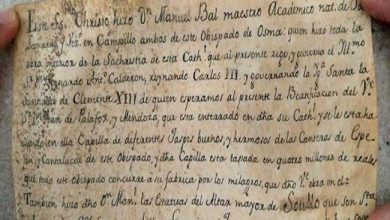 Este Sto. Christo hizo Dn. Manuel Bal maestro Academico nat. de Sn.
Bernardo de Yez. en Campillo ambos de este Obispado de Osma: quien hizo toda la
obra interior de la Sachristia de esta Cath.l que al presente rige y govierna el Illmo
Bernardo Anto. Calderon, reynando Carlos III. y governando la Ya. Santa la
Santidad de Clemente XIII de quien esperamos al presente la Beatificacion del Ve.
Juan de Palafox, y Mendoza, que esta enterrado en dha su Cath.l y se le esta ha-
ciendo en ella Capilla de deferentes Jaspes buenos, y hermosos de las Canteras de Epe-
jon y Cantalucia de este Obispado, y dha Capilla esta tasada en quatro millones de reales
que todo este obispado concurre a su fabrica por los milagros, que dho Ve. obra en el:
Tambien hizo dho Dn. Man.l las Estatuas del Altar mayor de Sotillo que son Sta.